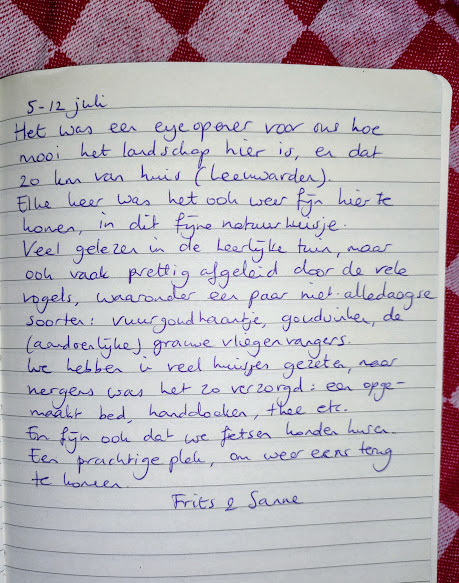 5-12 juli
Het was een eye opener voor ons hoe
mooi het landschap hier is, en dat
20 km van huis (Leeuwarden).
Elke keer was het ook weer fijn hier te
komen, in dit fijne natuurhuisje.
Veel gelezen in de heerlijke tuin, maar
ook vaak prettig afgeleid door de vele
vogels, waaronder een paar niet-alledaagse
soorten: vuurgoudhaantje, goudvinken, de
(aandoenlijke) grauwe vliegenvangers.
We hebben in veel huisjes gezeten, maar
nergens was het zo verzorgd: een opge-
maakt bed, handdoeken, thee etc.
En fijn ook dat we fietsen konden huren.
Een prachtige plek, om weer eens terug
te komen.
Frits & Sanne